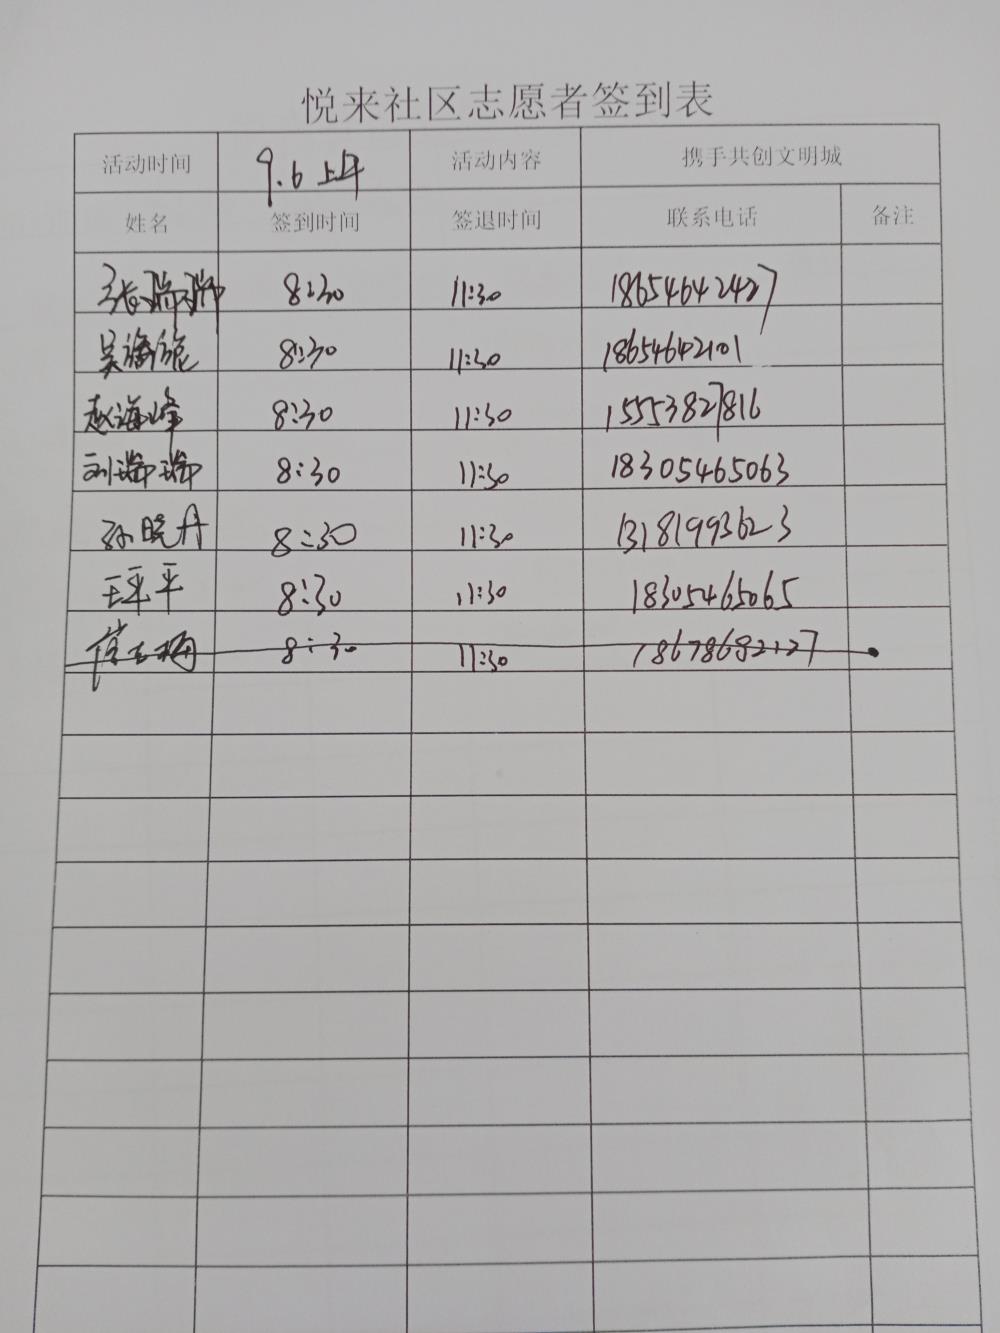 悦来社区志愿者签到表
活动时间 9.6 上午 活动内容 携手共创文明城
姓名 签到时间 签退时间 联系电话 备注
张瑞瑞 8:30 11:30 18654642427
吴海龙 8:30 11:30 18654642101
赵海峰 8:30 11:30 15553827816
刘瑞瑞 8:30 11:30 18305465063
孙晓丹 8:30 11:30 13181993623
王平平 8:30 11:30 18305465065
8:30 11:30 18678682127